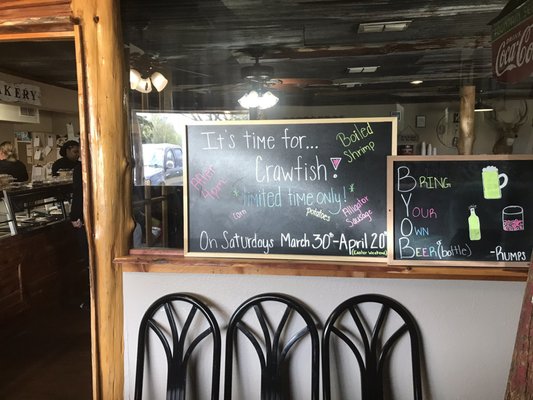 AKERY
It's time for...
Crawfish!
*limited time only!*
Boiled
Shrimp
After
4pm
corn
potatoes
Alligator
Sausage
On Saturdays March 30th-April 20th
(Easter Weekend)
Bring
Your
Own
Beer(bottle)
-Rumps
DRINK
Coca-Cola